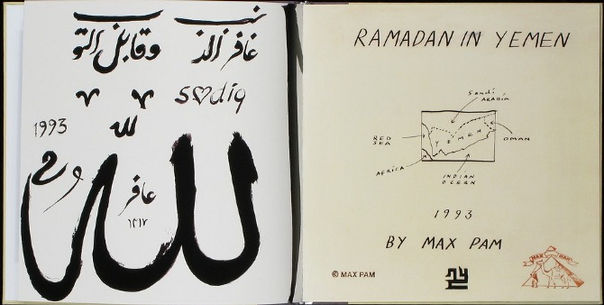 غافر الذنب وقابل التوب
s♡diq
1993
لله
غافر
الله
RAMADAN IN YEMEN
Saudi
ARABIA
RED
SEA
YEMEN
OMAN
AFRICA
INDIAN
OCEAN
1993
BY MAX PAM
© MAX PAM
MAX PAM